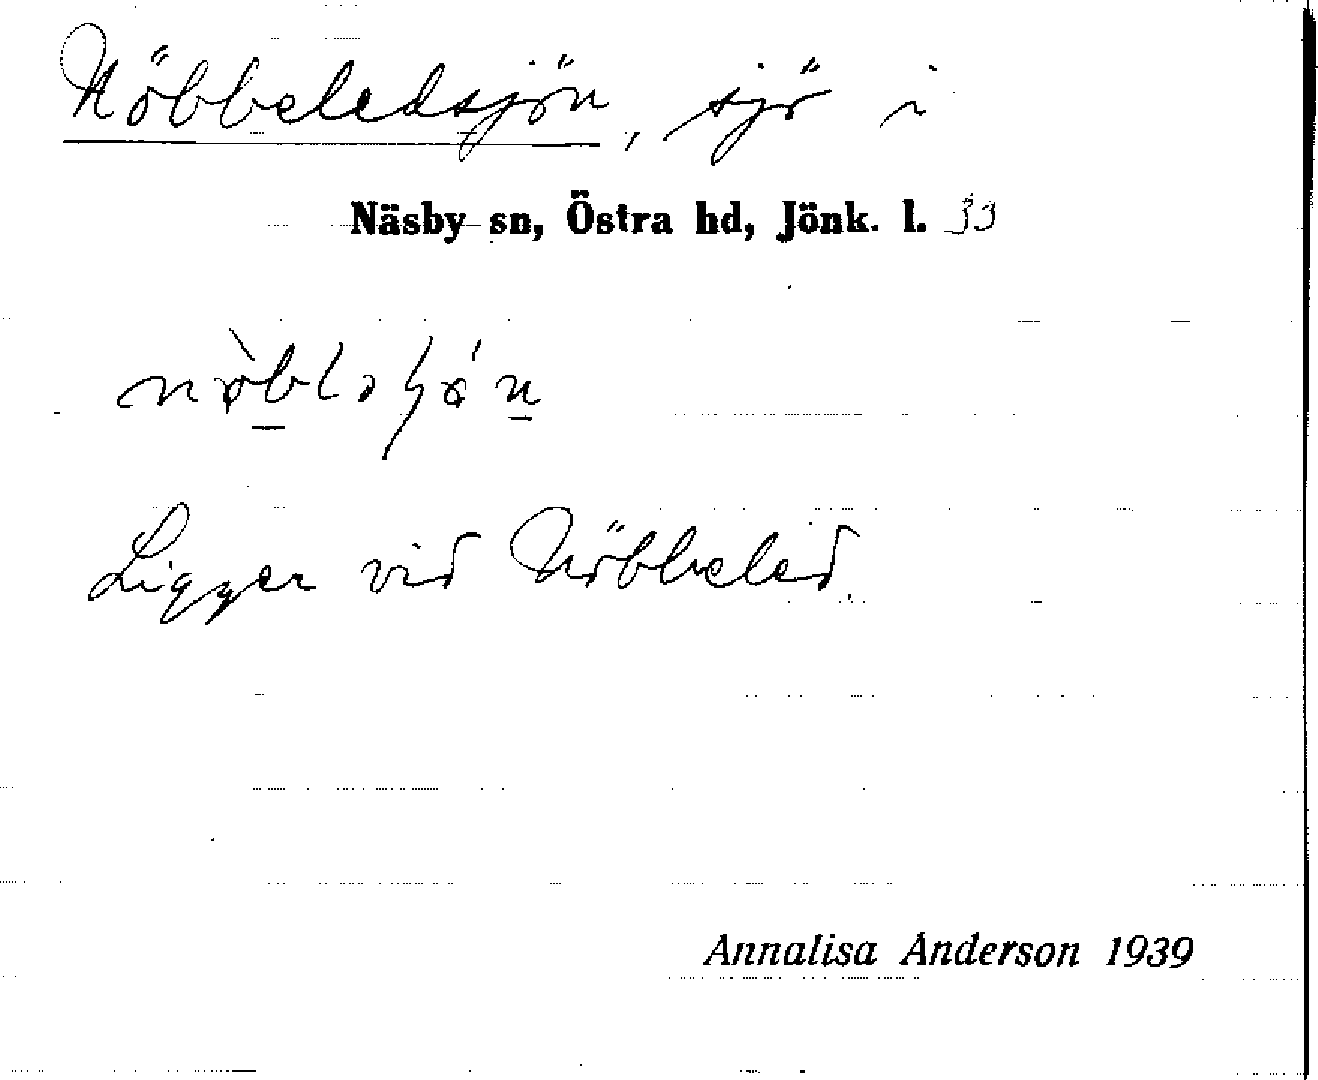 Nöbbeledsjön, sjö i
Näsby sn, Östra hd, Jönk. l. 33
Ligger vid Nöbbeled.
Annalisa Anderson 1939